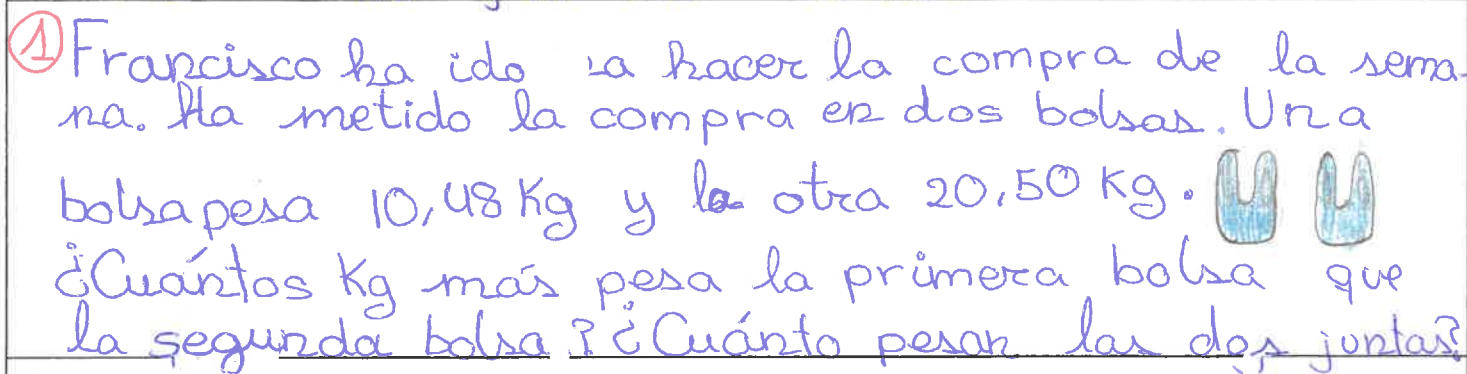 ① Francisco ha ido a hacer la compra de la sema-
na. Ha metido la compra en dos bolsas. Una
bolsa pesa 10,48 Kg y la otra 20,50 Kg.
¿Cuántos Kg más pesa la primera bolsa que
la segunda bolsa? ¿Cuánto pesan las dos juntas?